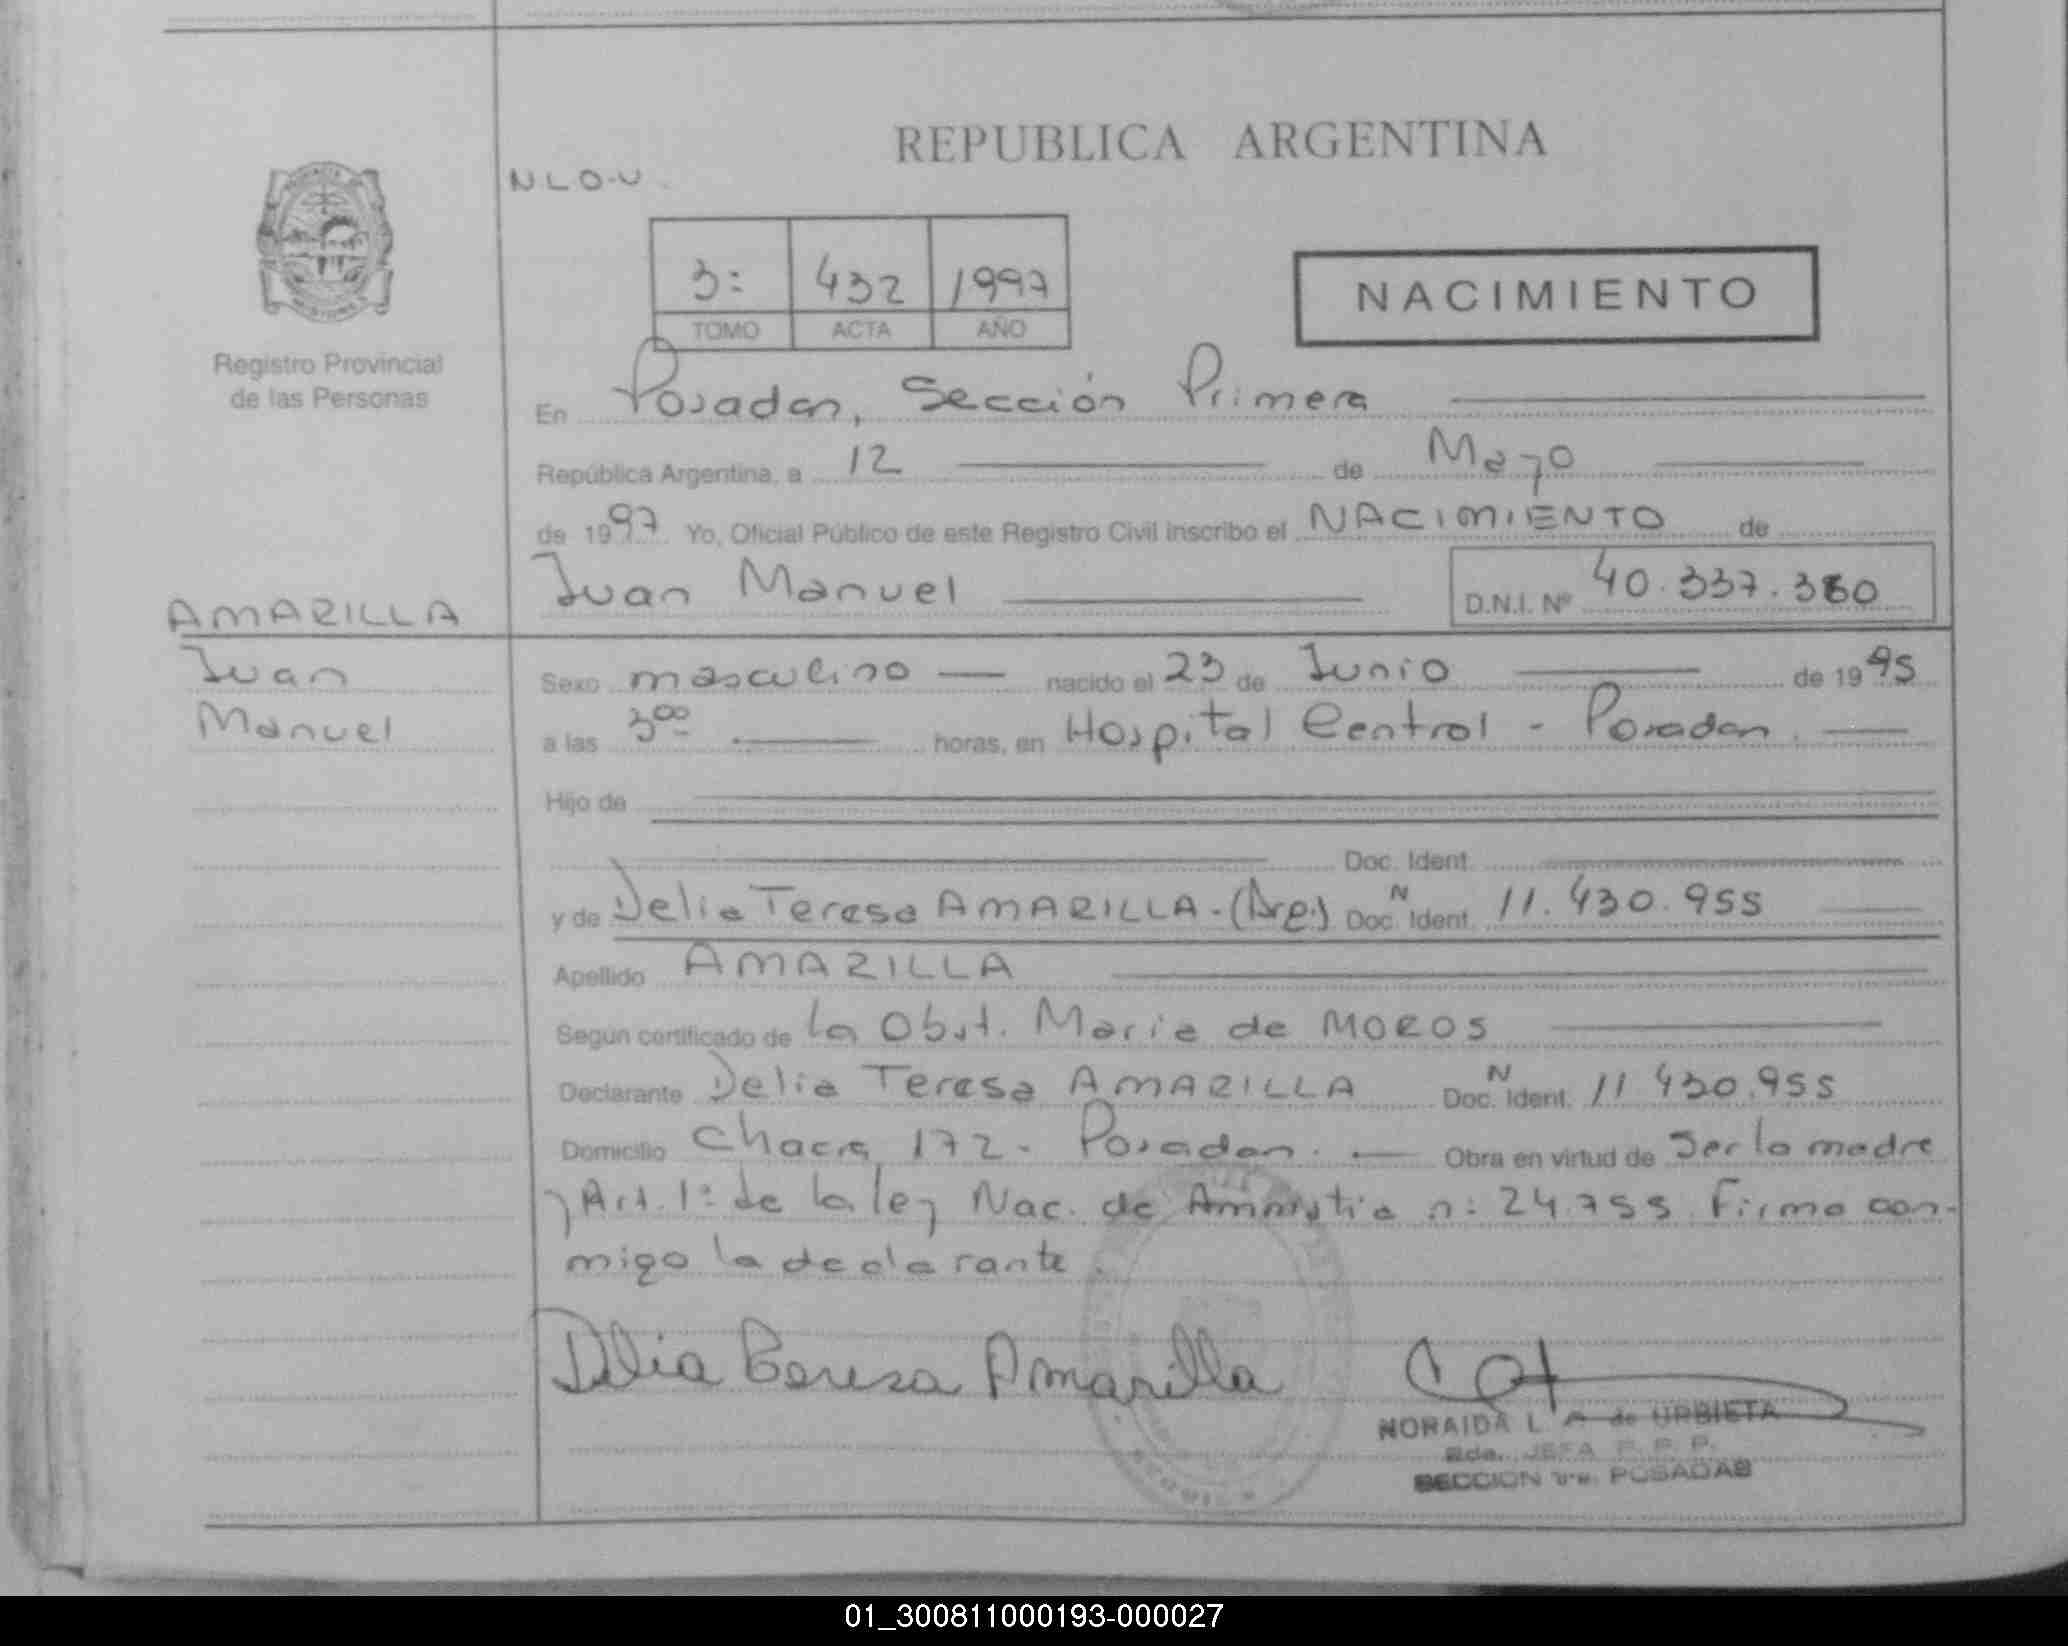 REPUBLICA ARGENTINA
N L O . U .
3: 432 1997
TOMO ACTA AÑO
NACIMIENTO
Registro Provincial
de las Personas
En Posadas, Sección Primera
República Argentina, a 12 de Mayo
de 1997 Yo, Oficial Público de este Registro Civil inscribo el NACIMIENTO de
Juan Manuel D.N.I. Nº 40.337.380
AMARILLA
Juan
Manuel
Sexo masculino nacido el 23 de Junio de 1995
a las 300 horas, en Hospital Central - Posadas.
Hijo de
Doc. Ident.
y de Delia Teresa AMARILLA - (Arg.) Doc. N Ident. 11.430.955
Apellido AMARILLA
Según certificado de la Obst. Maria de MOROS
Declarante Delia Teresa AMARILLA Doc. N Ident. 11 430.955
Domicilio Chacra 172 - Posadas. Obra en virtud de Ser la madre
y Art. 1º de la ley Nac. de Amnistia n: 24.755. Firma con-
migo la declarante.
Delia Teresa Amarilla
NORAIDA L A de URBIETA
JEFA R. P. P.
SECCION 1ra. POSADAS
01_300811000193-000027